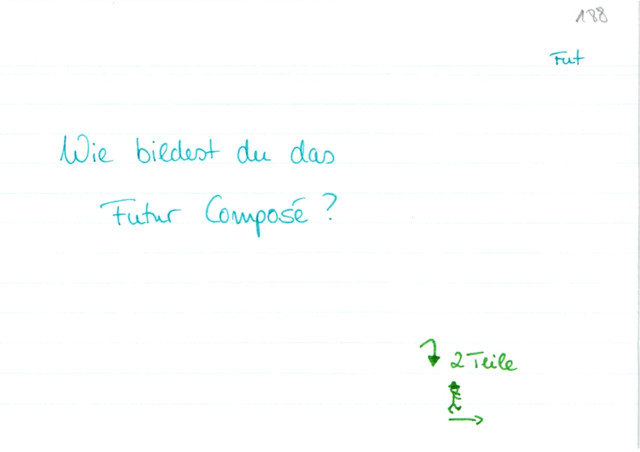 188
Fut
Wie bildest du das
Futur Composé?
2 Teile